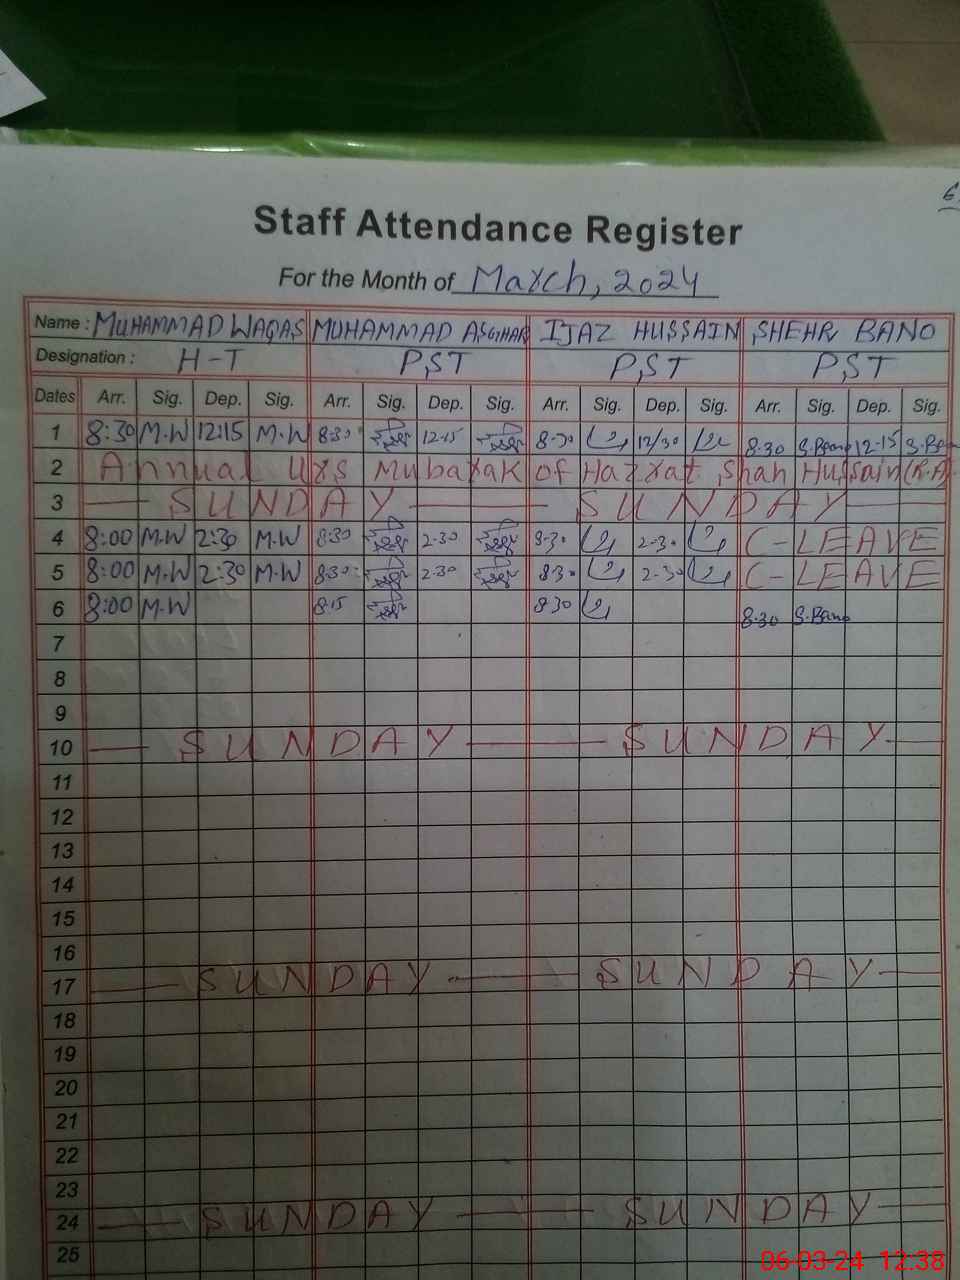 6
Staff Attendance Register
For the Month of March, 2024
Name : MUHAMMAD WAQAS MUHAMMAD ASGHAR IJAZ HUSSAIN SHEHR BANO
Designation : H-T PST PST PST
Dates Arr. Sig. Dep. Sig. Arr. Sig. Dep. Sig. Arr. Sig. Dep. Sig. Arr. Sig. Dep. Sig.
1 8:30 M.W 12:15 M.W 8-30 12-15 8-30 12/30 8-30 S.Bano 12-15 S.Ban
2 Annual Urs Mubarak of Hazrat Shah Hussain (R.A)
3 SUNDAY SUNDAY
4 8:00 M.W 2:30 M.W 8:30 2-30 8-30 2-30 C-LEAVE
5 8:00 M.W 2:30 M.W 8:30 2-30 8:30 2-30 C-LEAVE
6 8:00 M.W 8:15 8-30 8-30 S.Bano
7
8
9
10 SUNDAY SUNDAY
11
12
13
14
15
16
17 SUNDAY SUNDAY
18
19
20
21
22
23
24 SUNDAY SUNDAY
25
06-03-24 12:38